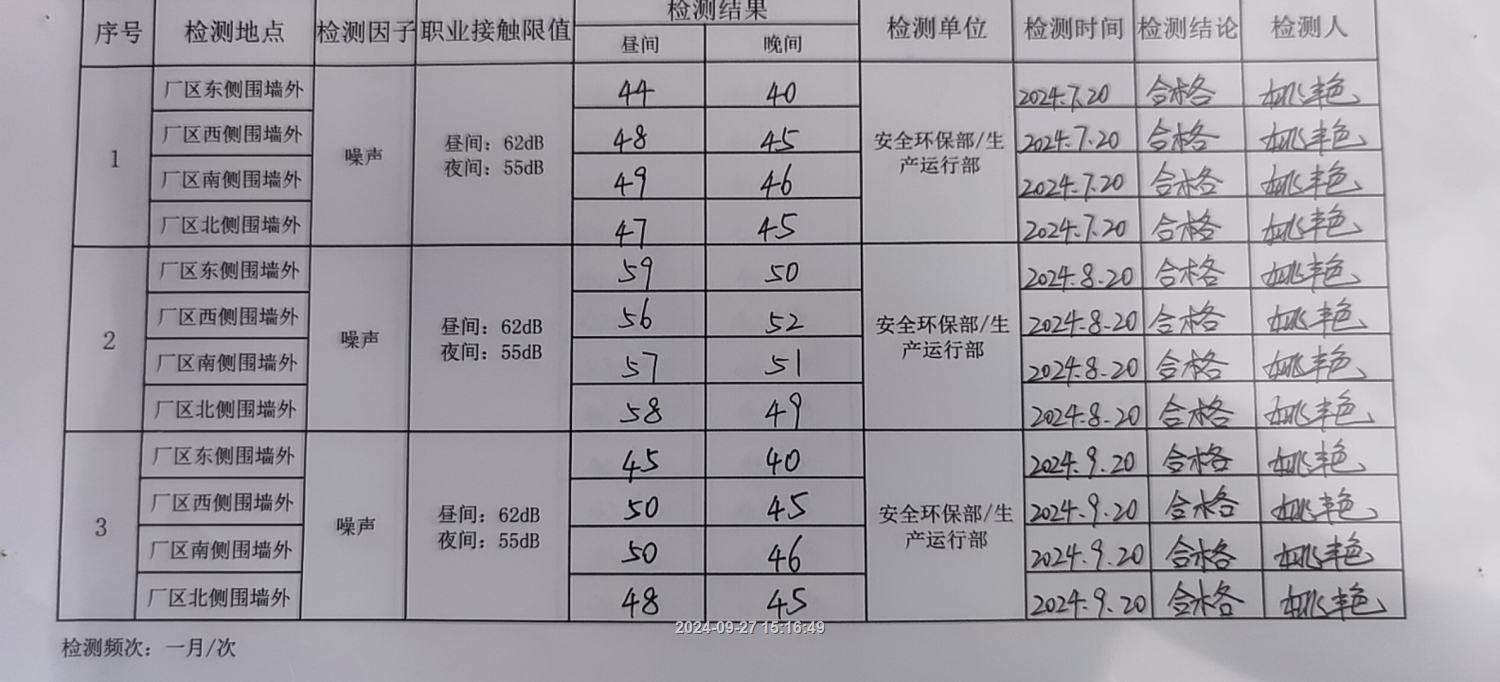 序号 检测地点 检测因子 职业接触限值 检测结果 检测单位 检测时间 检测结论 检测人
昼间 晚间
厂区东侧围墙外 44 40 2024.7.20 合格 姚艳
厂区西侧围墙外 48 45 2024.7.20 合格 姚艳
1 噪声 昼间：62dB 安全环保部/生
夜间：55dB 产运行部
厂区南侧围墙外 49 46 2024.7.20 合格 姚艳
厂区北侧围墙外 47 45 2024.7.20 合格 姚艳
厂区东侧围墙外 59 50 2024.8.20 合格 姚艳
厂区西侧围墙外 56 52 2024.8.20 合格 姚艳
2 噪声 昼间：62dB 安全环保部/生
夜间：55dB 产运行部
厂区南侧围墙外 57 51 2024.8.20 合格 姚艳
厂区北侧围墙外 58 49 2024.8.20 合格 姚艳
厂区东侧围墙外 45 40 2024.9.20 合格 姚艳
厂区西侧围墙外 50 45 2024.9.20 合格 姚艳
3 噪声 昼间：62dB 安全环保部/生
夜间：55dB 产运行部
厂区南侧围墙外 50 46 2024.9.20 合格 姚艳
厂区北侧围墙外 48 45 2024.9.20 合格 姚艳
2024-09-27 15:16:49
检测频次：一月/次